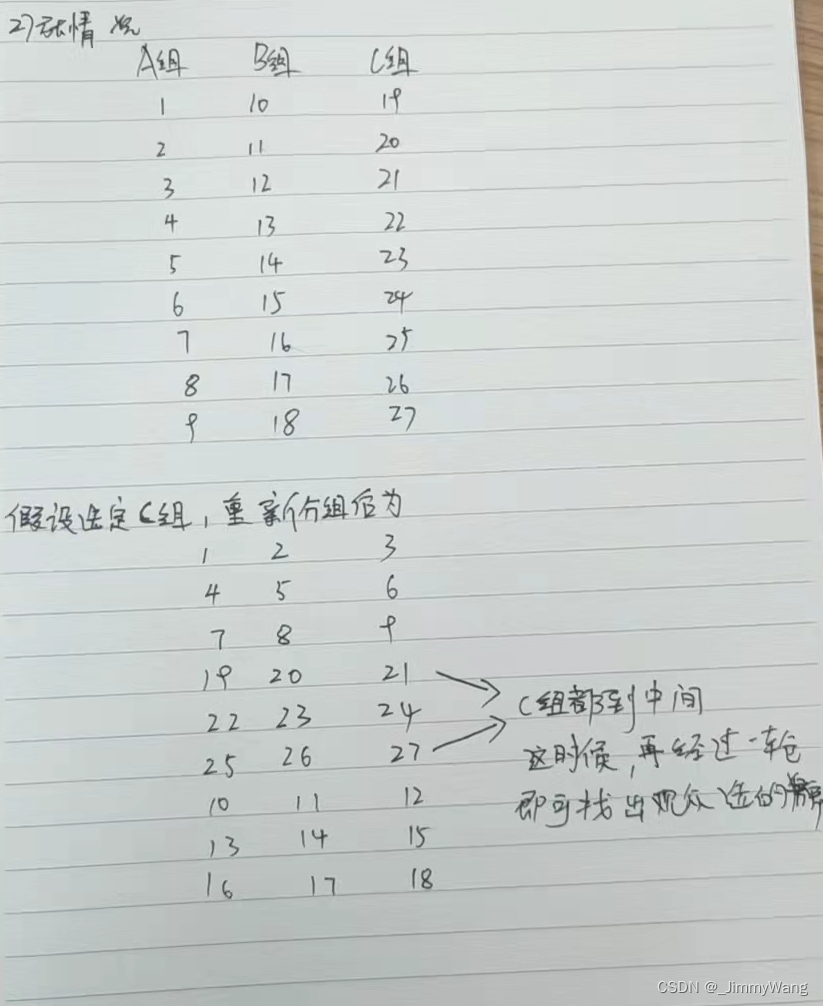 27张情况
A组 B组 C组
1 10 19
2 11 20
3 12 21
4 13 22
5 14 23
6 15 24
7 16 25
8 17 26
9 18 27
假设选定C组，重新分组后为
1 2 3
4 5 6
7 8 9
19 20 21
22 23 24
25 26 27
10 11 12
13 14 15
16 17 18
C组都到中间
这时候，再经过一轮
即可找出观众选的牌
CSDN @_JimmyWang